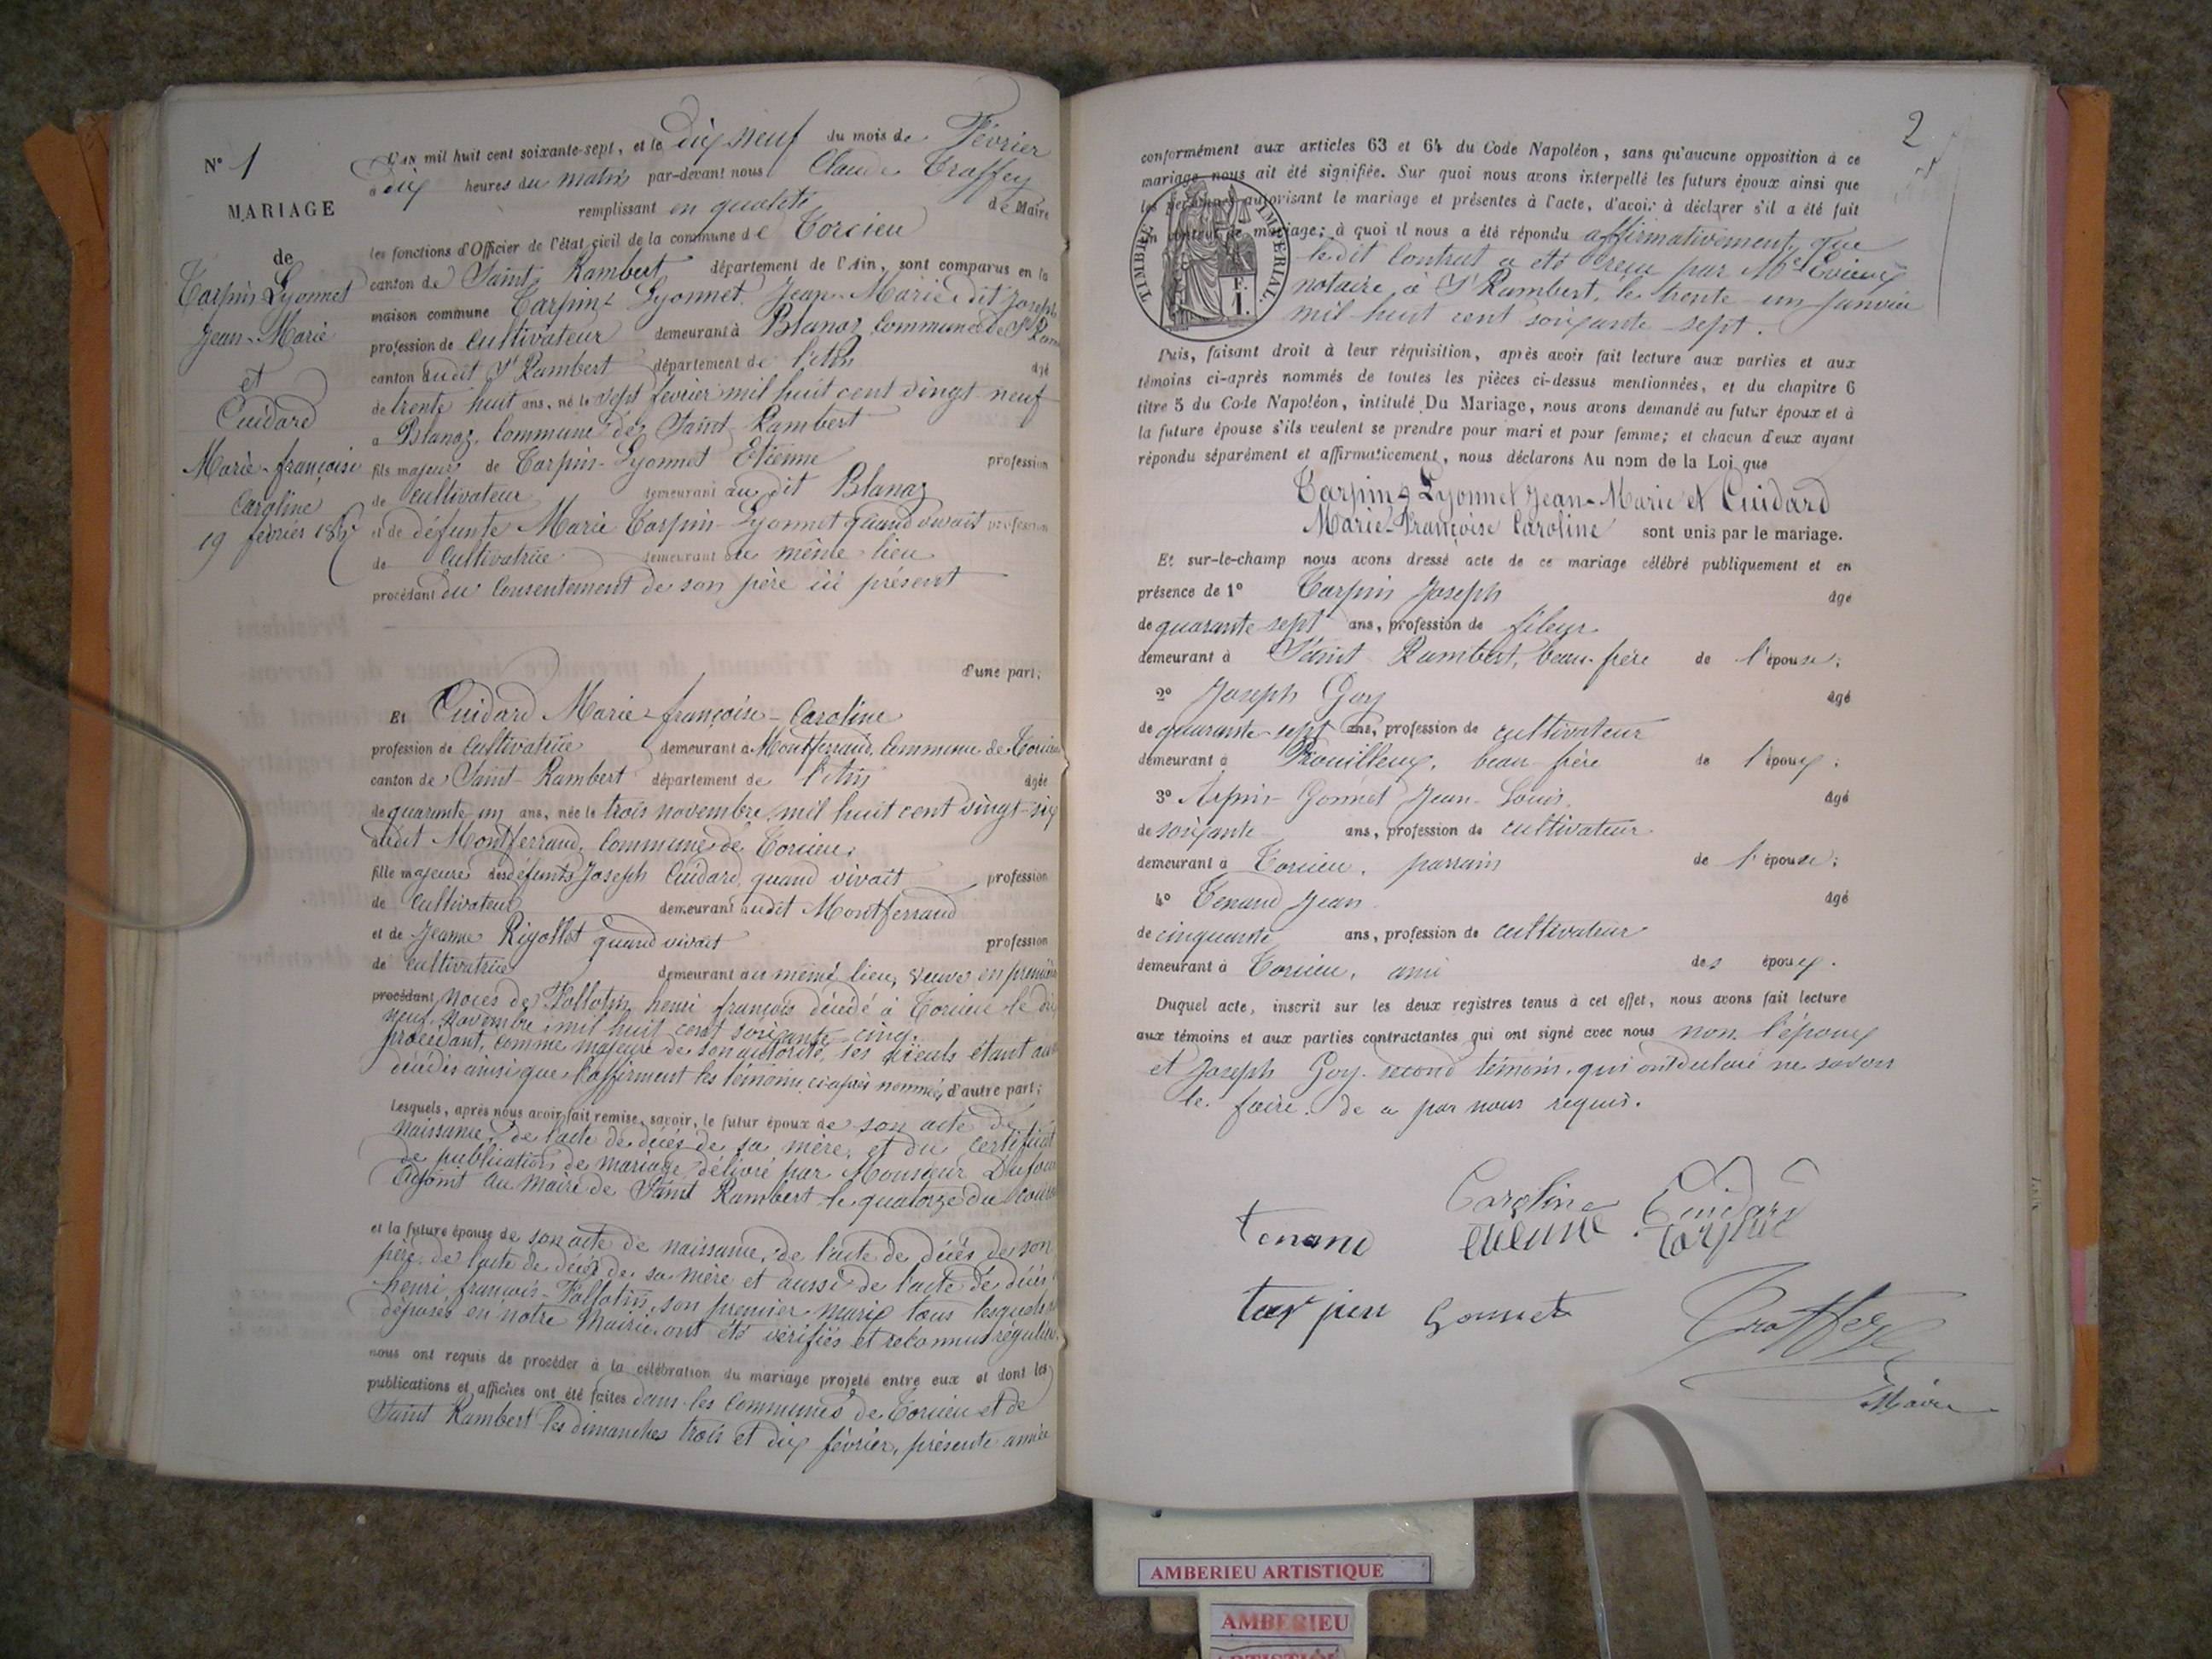 N° 1
MARIAGE
de
Tarpin-Lyonnet
Jean-Marie
et
Cuidard
Marie-françoise
Caroline
19 février 1867
L'AN mil huit cent soixante-sept, et le dix neuf du mois de Février
à dix heures du matin par-devant nous Claude Traffey
remplissant en qualité de Maire
les fonctions d'Officier de l'état civil de la commune de Torcieu
canton de Saint Rambert département de l'Ain, sont comparus en la
maison commune Tarpin-Lyonnet Jean-Marie dit Joseph
profession de cultivateur demeurant à Blanaz, commune de St Ram
canton dudit St Rambert département de l'Ain âgé
de trente huit ans, né le sept février mil huit cent vingt-neuf
à Blanaz, commune de Saint Rambert
fils majeur de Tarpin-Lyonnet Etienne profession
de cultivateur demeurant au dit Blanaz
et de défunte Marie Tarpin-Lyonnet quand vivait profession
de Cultivatrice demeurant au même lieu
procédant du consentement de son père ici présent
d'une part;
Et Cuidard Marie-françoise-Caroline
profession de cultivatrice demeurant à Montferrand, commune de Torcieu
canton de Saint-Rambert département de l'Ain âgée
de quarante un ans, née le trois novembre mil huit cent vingt-six
audit Montferrand, commune de Torcieu,
fille majeure des défunts Joseph Cuidard, quand vivait profession
de cultivateur demeurant audit Montferrand
et de Jeanne Rigollet quand vivait profession
de cultivatrice demeurant au même lieu, veuve en première
procédant noces de henri françois décédé à Torcieu le dix
neuf novembre mil huit cent soixante-cinq.
procédant, comme majeure de son autorité, ses aïeuls étant
décédés ainsi que l'affirment les témoins ci-après nommés, d'autre part;
Lesquels, après nous avoir fait remise, savoir, le futur époux de son acte de
naissance, de l'acte de décès de sa mère, et du certificat
de publication de mariage délivré par Monsieur Dufour
Adjoint au Maire de Saint Rambert le quatorze du courant
et la future épouse de son acte de naissance, de l'acte de décès de son
père, de l'acte de décès de sa mère et aussi de l'acte de décès
henri françois son premier mari tous lesquels
déposés en notre Mairie ont été vérifiés et reconnus réguliers
nous ont requis de procéder à la célébration du mariage projeté entre eux et dont les
publications et affiches ont été faites dans les communes de Torcieu et de
Saint Rambert les dimanches trois et dix février, présente année
2
conformément aux articles 63 et 64 du Code Napoléon, sans qu'aucune opposition à ce
mariage nous ait été signifiée. Sur quoi nous avons interpellé les futurs époux ainsi que
les personnes autorisant le mariage et présentes à l'acte, d'avoir à déclarer s'il a été fait
un contrat de mariage; à quoi il nous a été répondu affirmativement, que
ledit contrat a été reçu par Me
notaire à St Rambert, le trente-un janvier
mil huit cent soixante-sept.
TIMBRE IMPERIAL.
E.
I.
Puis, faisant droit à leur réquisition, après avoir fait lecture aux parties et aux
témoins ci-après nommés de toutes les pièces ci-dessus mentionnées, et du chapitre 6
titre 5 du Code Napoléon, intitulé Du Mariage, nous avons demandé au futur époux et à
la future épouse s'ils veulent se prendre pour mari et pour femme; et chacun d'eux ayant
répondu séparément et affirmativement, nous déclarons Au nom de la Loi que
Tarpin-Lyonnet Jean-Marie et Cuidard
Marie-Françoise Caroline sont unis par le mariage.
Et sur-le-champ nous avons dressé acte de ce mariage célébré publiquement et en
présence de 1° Tarpin Joseph âgé
de quarante sept ans, profession de fileur
demeurant à Saint Rambert, beau-frère de l'épouse;
2° Joseph Goy âgé
de quarante-sept ans, profession de cultivateur
demeurant à Prouilleux, beau-frère de l'époux;
3° Arpin-Gonnet Jean-Louis âgé
de soixante ans, profession de cultivateur
demeurant à Torcieu, parrain de l'épouse;
4° Tenand Jean âgé
de cinquante ans, profession de cultivateur
demeurant à Torcieu, ami des époux.
Duquel acte, inscrit sur les deux registres tenus à cet effet, nous avons fait lecture
aux témoins et aux parties contractantes qui ont signé avec nous non l'époux
et Joseph Goy second témoin, qui ont déclaré ne savoir
le faire, de ce par nous requis.
Caroline Cuidard
tenand etienne tarpin
tarpin Gonnet Traffey
Maire
AMBERIEU ARTISTIQUE
AMBERIEU
ARTISTIQUE